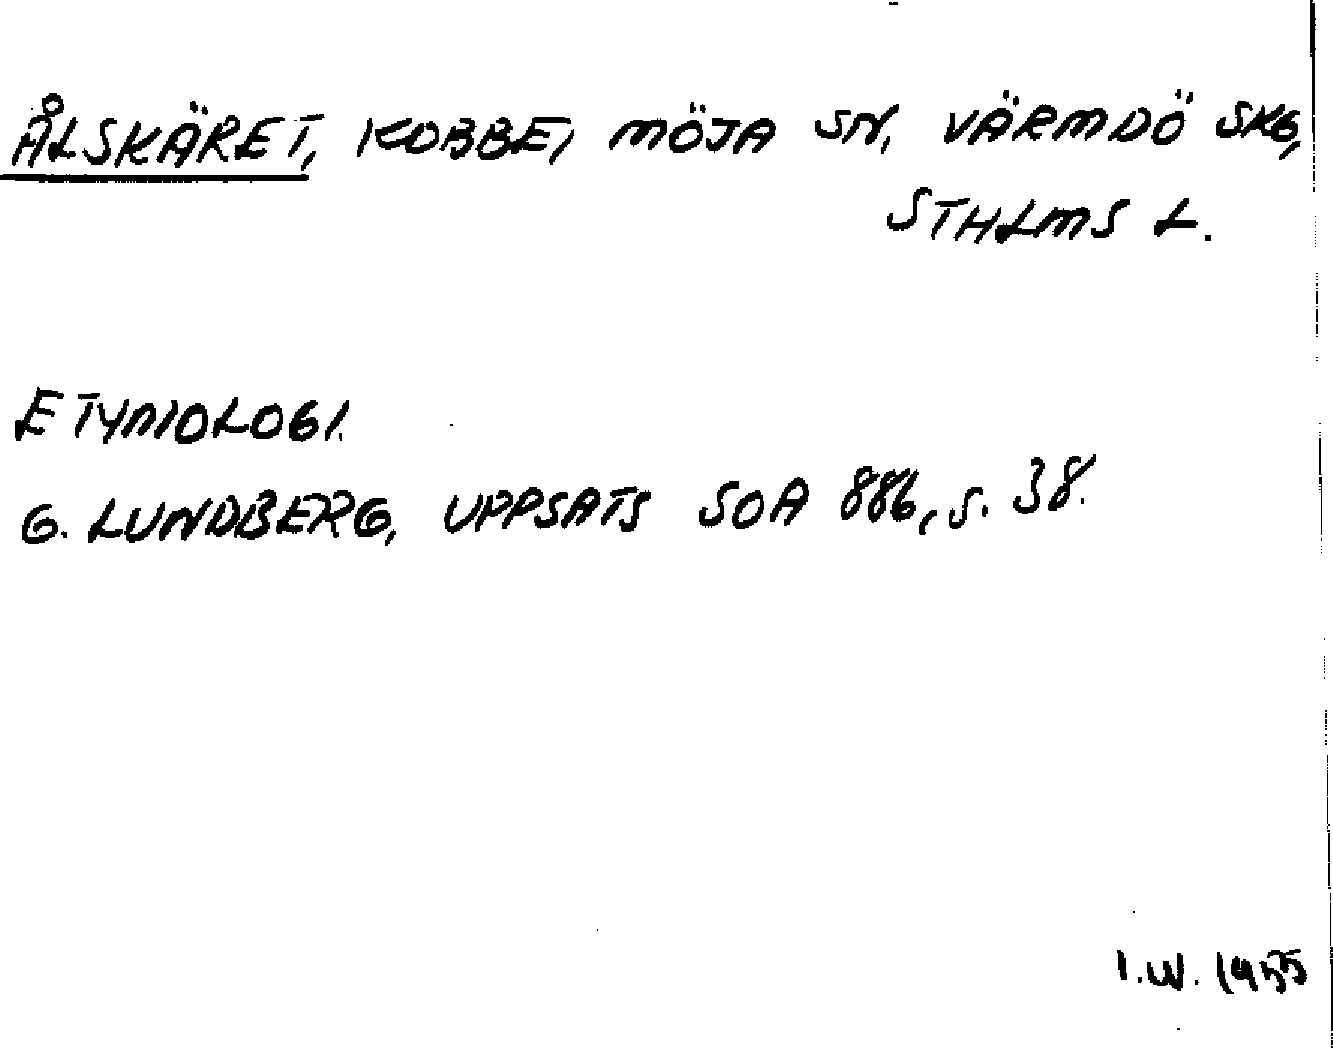 ÅLSKÄRET, KOBBE, MÖJA SN, VÄRMDÖ SKG,
STHLMS L.
ETYMOLOGI.
G. LUNDBERG, UPPSATS SOA 886, S. 38.
I.W. 1955